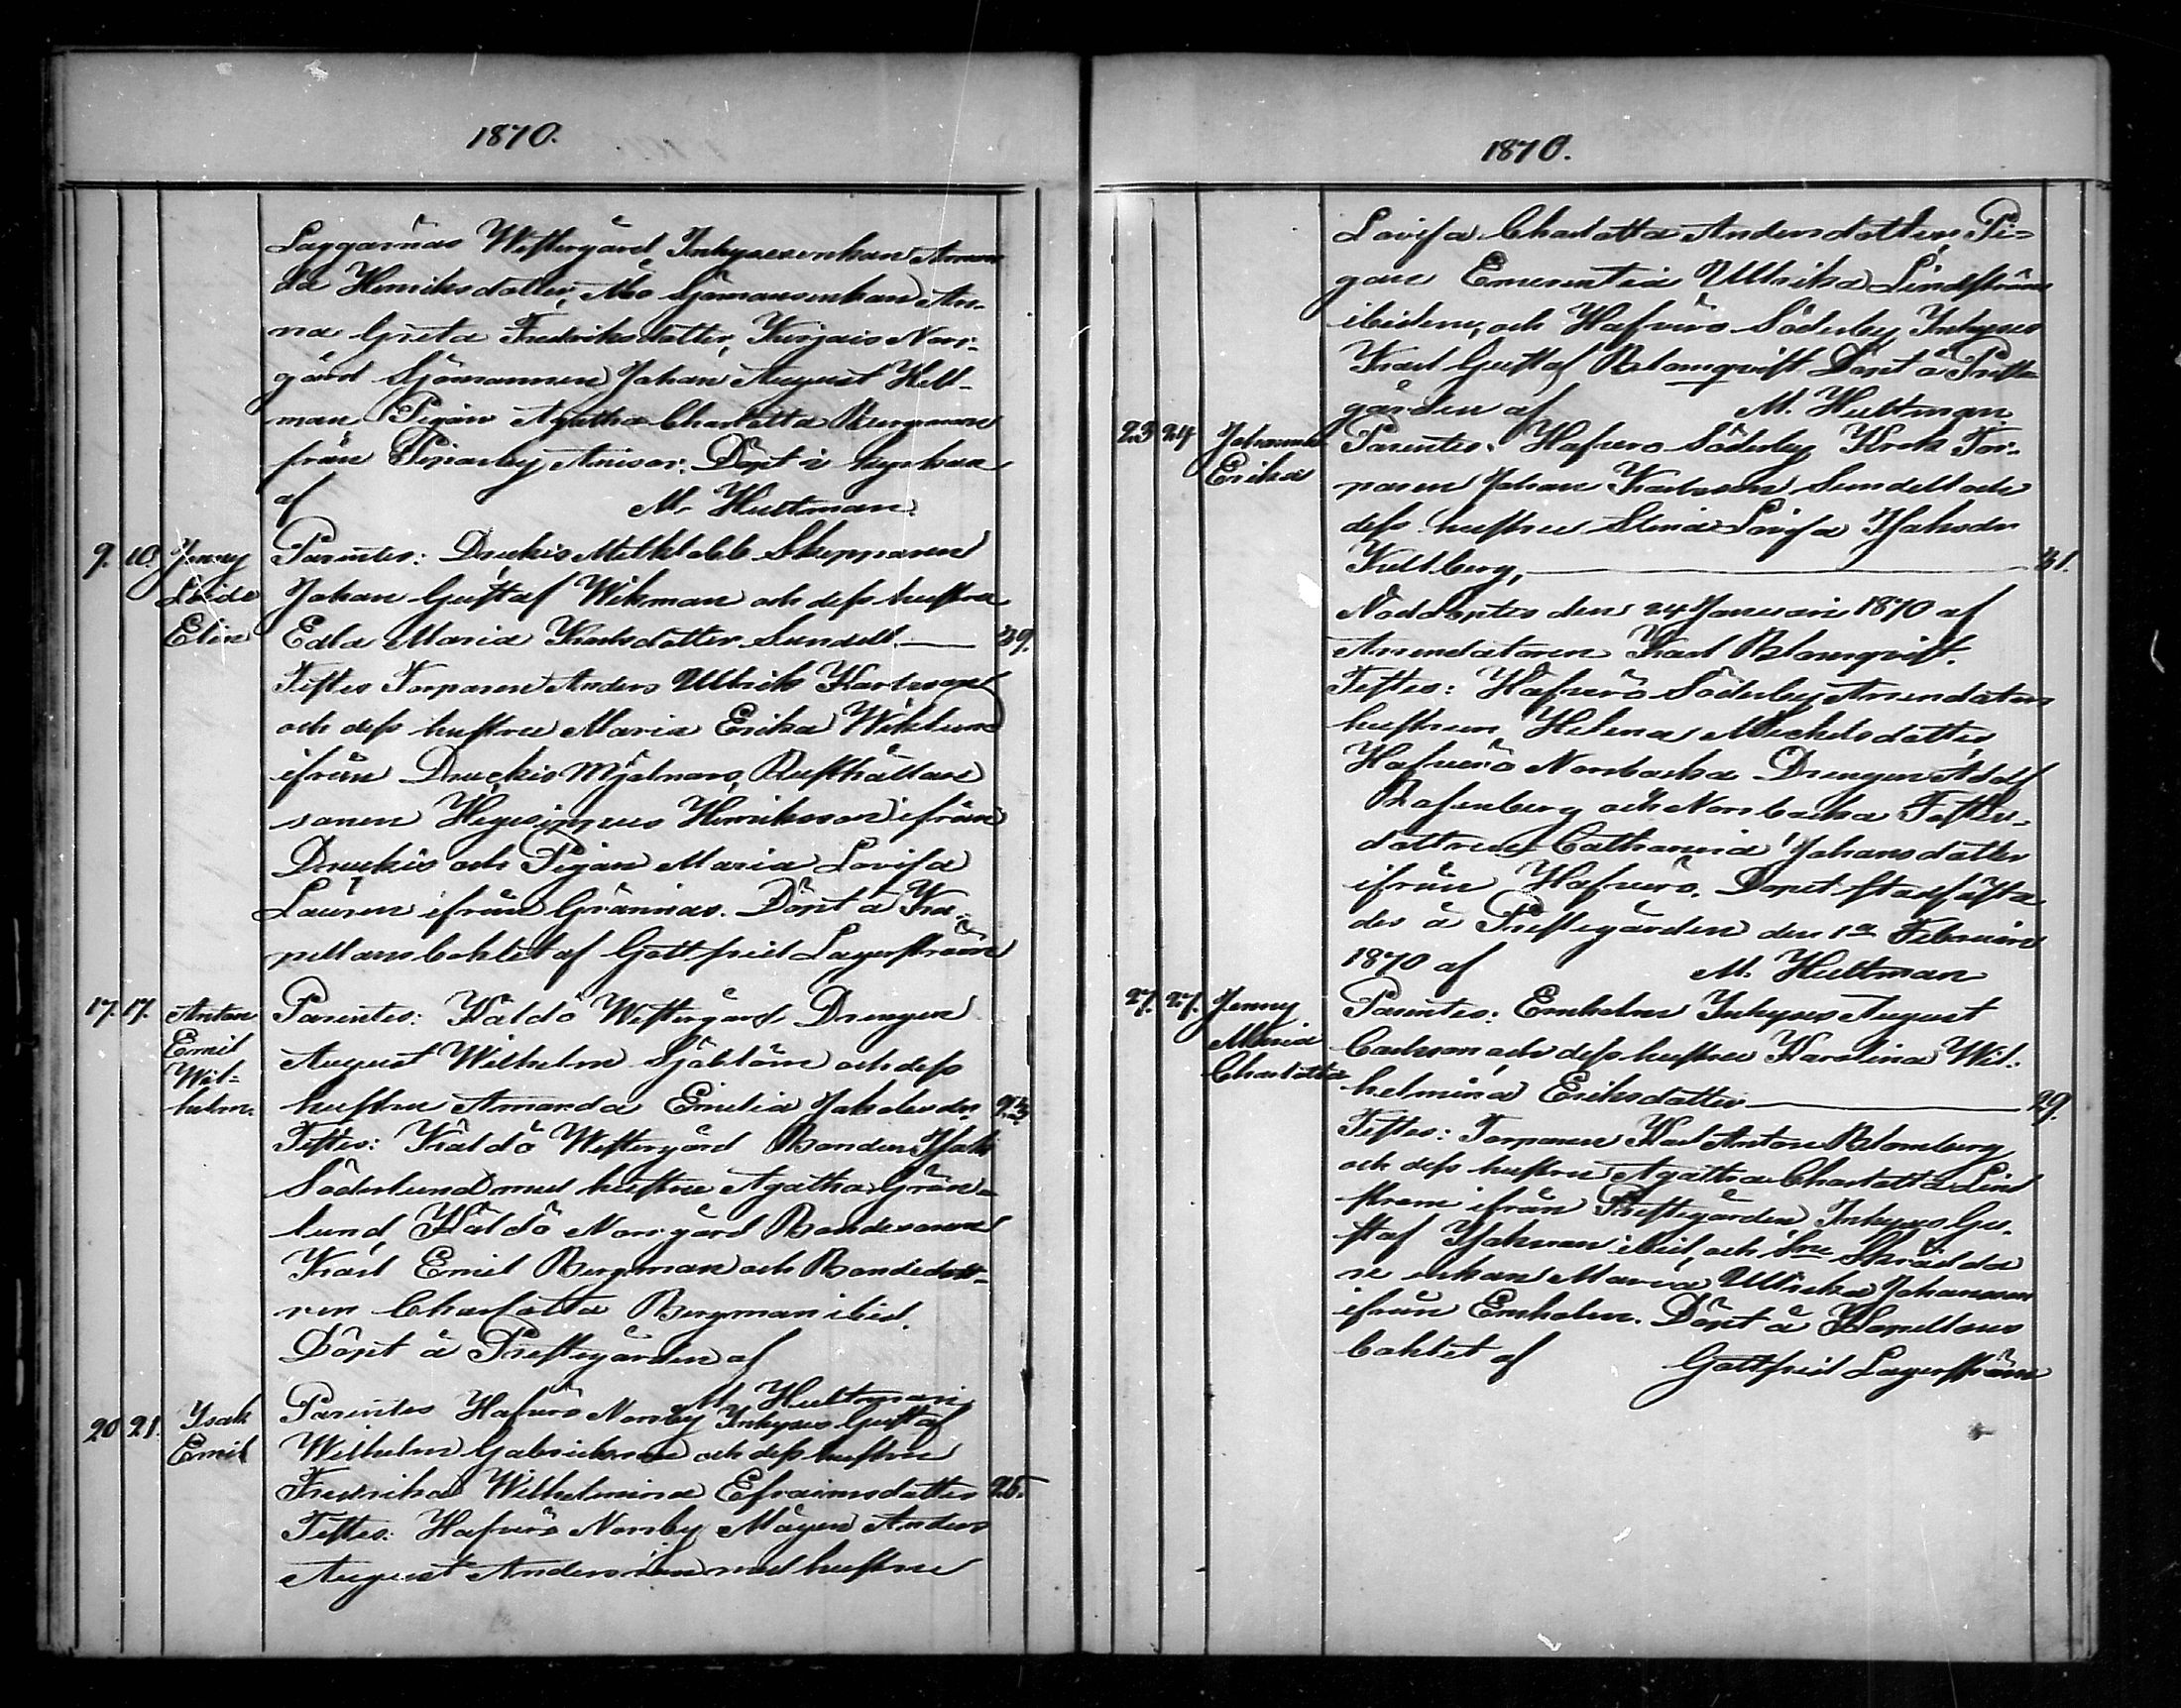 1870.
Laggarnäs Westergård Inhysesenkan Aman
da Henriksdotter, Mós Sjömansenkan An-
na Greta Fredriksdotter, Kirjais Norr-
gård Sjömannen Johan August Hell-
man Pigan Agatha Charlotta Bergman
från Pinarby Döpt i kyrkan
af M. Hultman.
9. 10. Jenny Parentes: Druckis Skepparen
Johan Gustaf Wikman och dess hustru
Elin Edla Maria Karlsdotter Sundell. 39.
Testes Torparen Anders Ulrik Karlsson
och dess hustru Maria Erika Wiklund
ifrån Druckis Mjelnars, Rusthållare
sonen Hegesippus Henriksson ifrån
Druckis och Pigan Maria Lovisa
Lauren ifrån Grännäs. Döpt å Ka-
pellansbohlet af Gottfried Lagerström
17. 17. Anton Parentes: Käldö Westergård Drengen
Emil August Wilhelm Sjöblom och dess
Wil-
helm. hustru Amanda Emilia Jakobsdr. 23
Testes: Käldö Westergård Bonden Isak
Söderlund med hustru Agatha Grön-
lund, Käldö Norrgård Bondesonen
Karl Emil Bergman och Bondedott-
ren Charlotta Bergman ibid.
Döpt å Prestegården af
M. Hultman
20 21. Isak Parentes Hafverö Norrby Inhyses Gustaf
Emil Wilhelm Gabrielsson och dess hustru
Fredrika Wilhelmina Efraimsdotter 25.
Testes: Hafverö Norrby Mågen Anders
August Andersson med hustru
1870.
Lovisa Charlotta Andersdotter, Pi-
gan Emerentia Ulrika Lindström
ibidem, och Hafverö Söderby Inhyses
Karl Gustaf Blomqvist Döpt å Preste-
gården af M. Hultman
23 24 Johanna Parentes: Hafverö Söderby Krok Tor-
Erika paren Johan Karlsson Sundell och
dess hustru Stina Lovisa Isaksdr
Kullberg, 31.
Nöddöptes den 24 Januari 1870 af
Arrendatoren Karl Blomqvist.
Testes: Hafverö Söderby Arrendators
hustrun Helena Michelsdotter,
Hafverö Norrbacka Drengen Adolf
Rosenberg och Norrbacka Foster-
dottren Catharina Johansdotter
ifrån Hafverö. Dopet stadfästa-
des å Prestegården den 1a Februari
1870 af M. Hultman
27. 27. Jenny Parentes: Emholm Inhyses August
Maria Carlsson och dess hustru Karolina Wil-
Charlotta helmina Eriksdotter 29.
Testes: Torparen Karl Anton Blomberg
och dess hustru Agatha Charlotta Lind
ström ifrån Prestegården, Inhyses Gu-
staf Isakson ibid, och Skrädda
re enkan Maria Ulrika Johansson
ifrån Emholm. Döpt å Kapellans
bohlet af Gottfried Lagerström